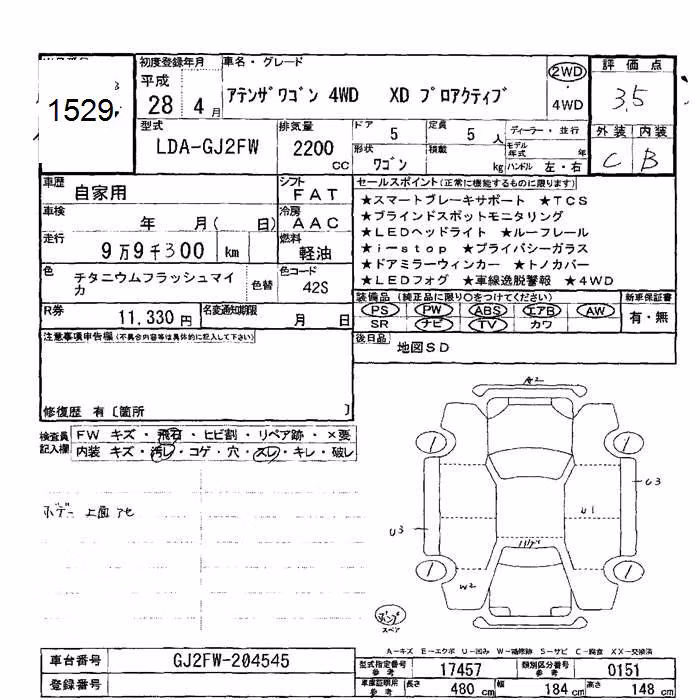 1529
初度登録年月
平成
28 4月
車名・グレード
アテンザワゴン 4WD XD プロアクティブ
2WD
・
4WD
評価点
3.5
外装 内装
C B
型式
LDA-GJ2FW
排気量
2200
cc
ドア 5
定員 5人
形状 ワゴン
積載 kg
ディーラー・並行
モデル年式 年
ハンドル 左・右
車歴
自家用
シフト
FAT
車検
年 月( 日)
冷房
AAC
走行
9万9千300 km
燃料
軽油
色
チタニウムフラッシュマイカ
色替
色コード
42S
R券
11,330円
名変通知期限
月 日
セールスポイント(正常に機能するものに限ります)
★スマートブレーキサポート ★TCS
★ブラインドスポットモニタリング
★LEDヘッドライト ★ルーフレール
★i-stop ★プライバシーガラス
★ドアミラーウィンカー ★トノカバー
★LEDフォグ ★車線逸脱警報 ★4WD
装備品 (純正品に限り○をつけてください)
PS PW ABS エアB AW
SR ナビ TV カワ
新車保証書
有・無
後日品
地図SD
注意事項申告欄(不具合内容等は具体的に記入して下さい)
修復歴 有〔箇所 〕
検査員記入欄
FW キズ・飛石・ヒビ割・リペア跡・×要
内装 キズ・汚レ・コゲ・穴・スレ・キレ・破レ
ボデー上面アセ
A2
1
1
U3
U1
U3
1
1
W2
スペア
A-キズ E-エクボ U-凹み W-補修跡 S-サビ C-腐食 XX-交換済
車台番号
GJ2FW-204545
登録番号
型式指定番号 参考
17457
類別区分番号 参考
0151
車庫証明用 参考
長さ 480cm
幅 184cm
高さ 148cm